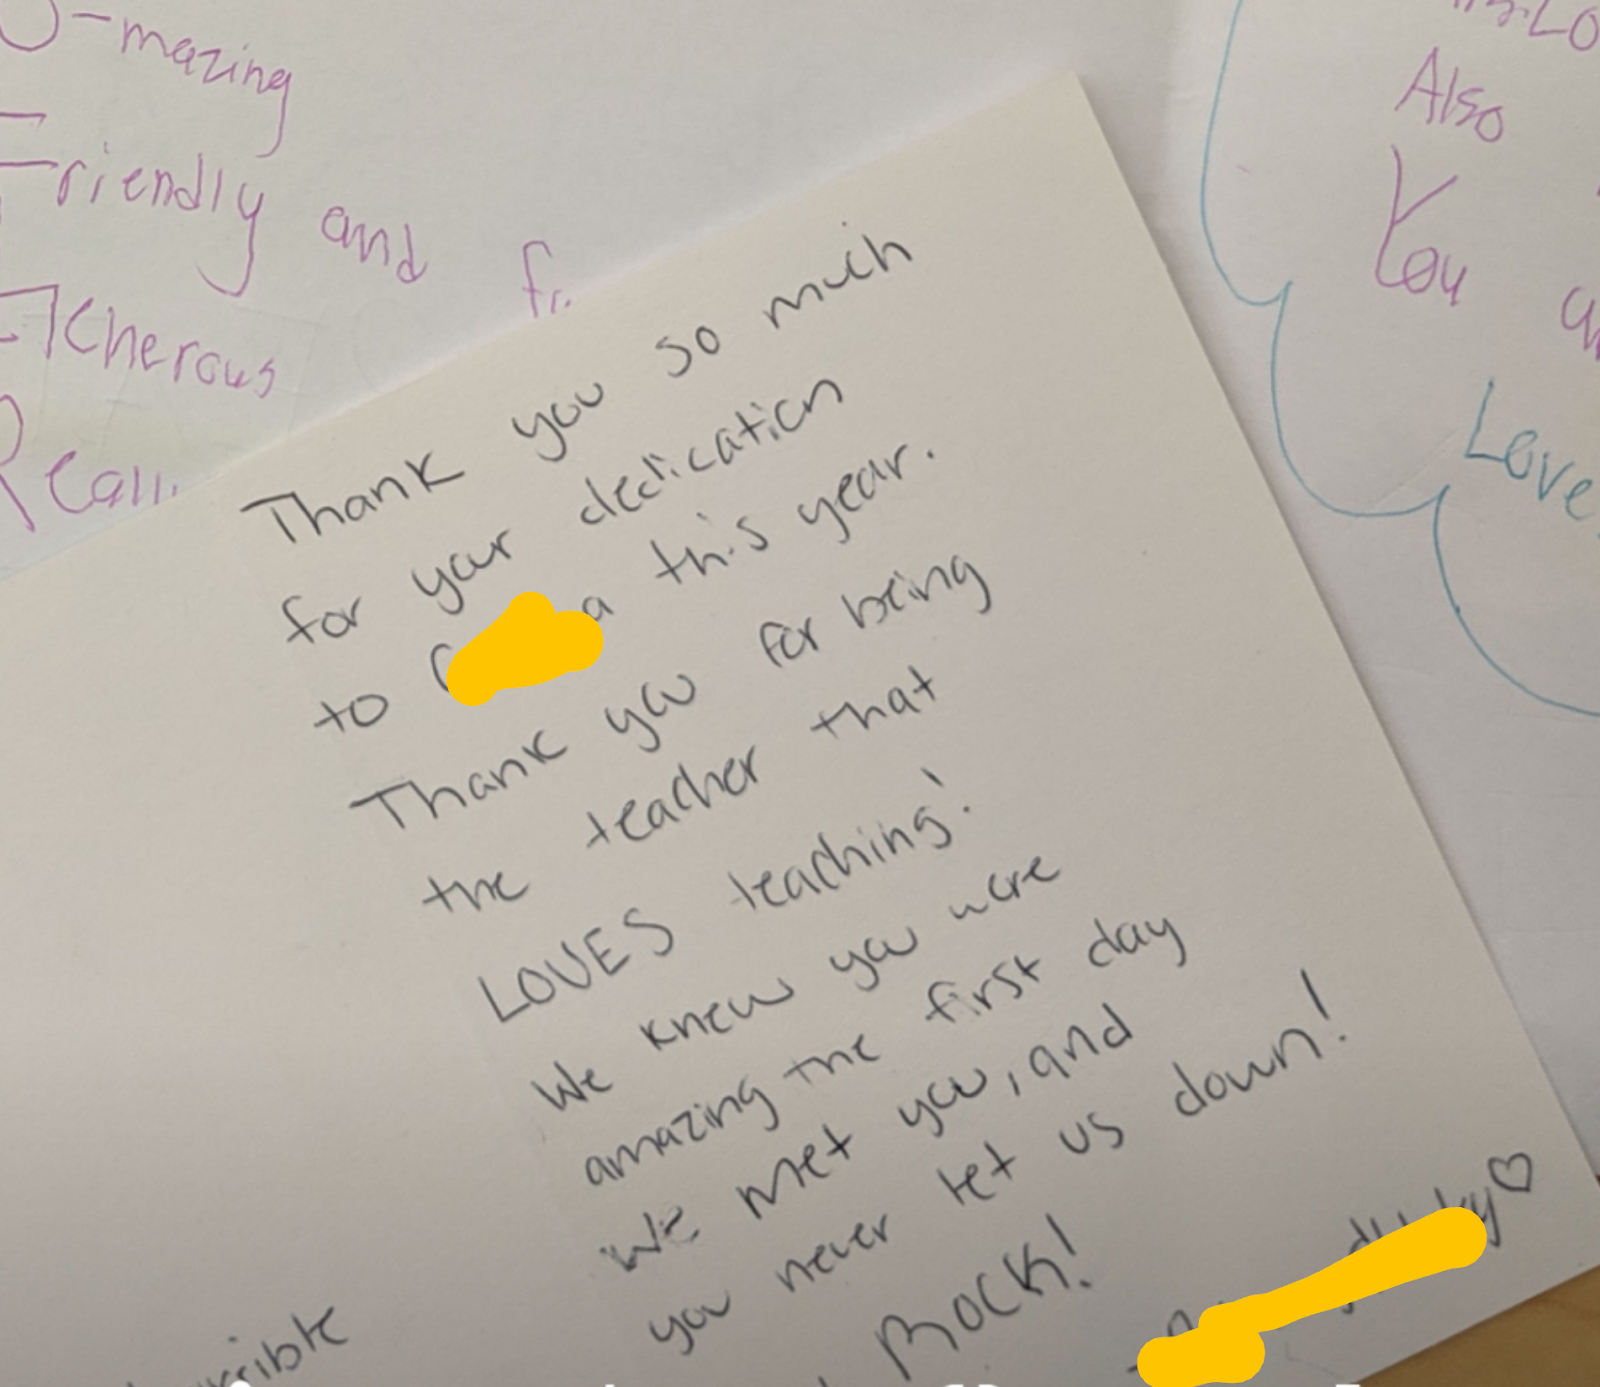 -mazing
Friendly and
Kherous
Also
You
Love
Thank you so much
for your dedication
to this year.
Thank you for being
the teacher that
LOVES teaching!
We knew you were
amazing the first day
we met you, and
you never let us down!
Rock!